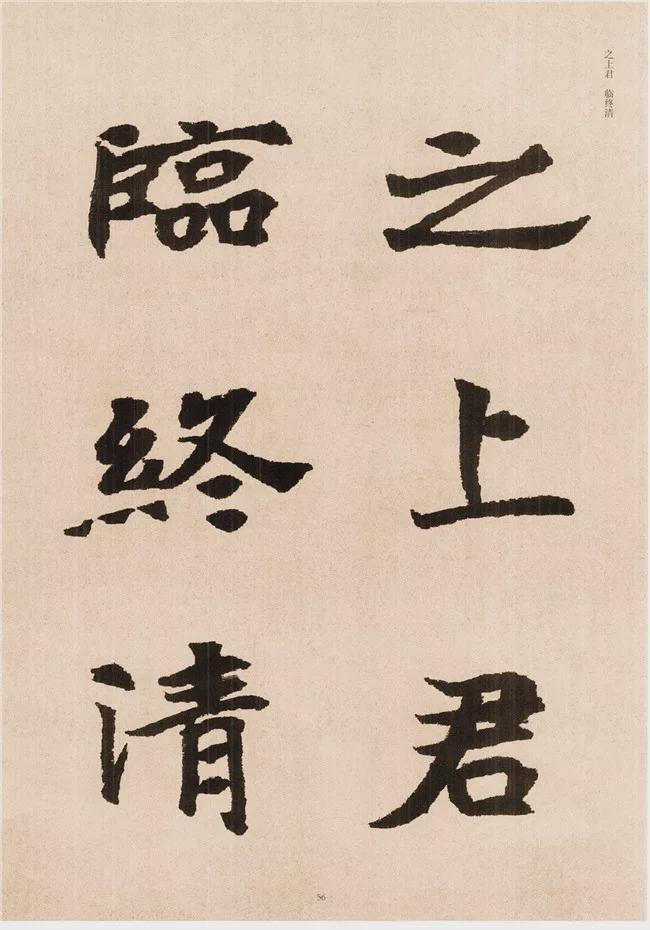 之上君 临终清
之上君
臨終清
56